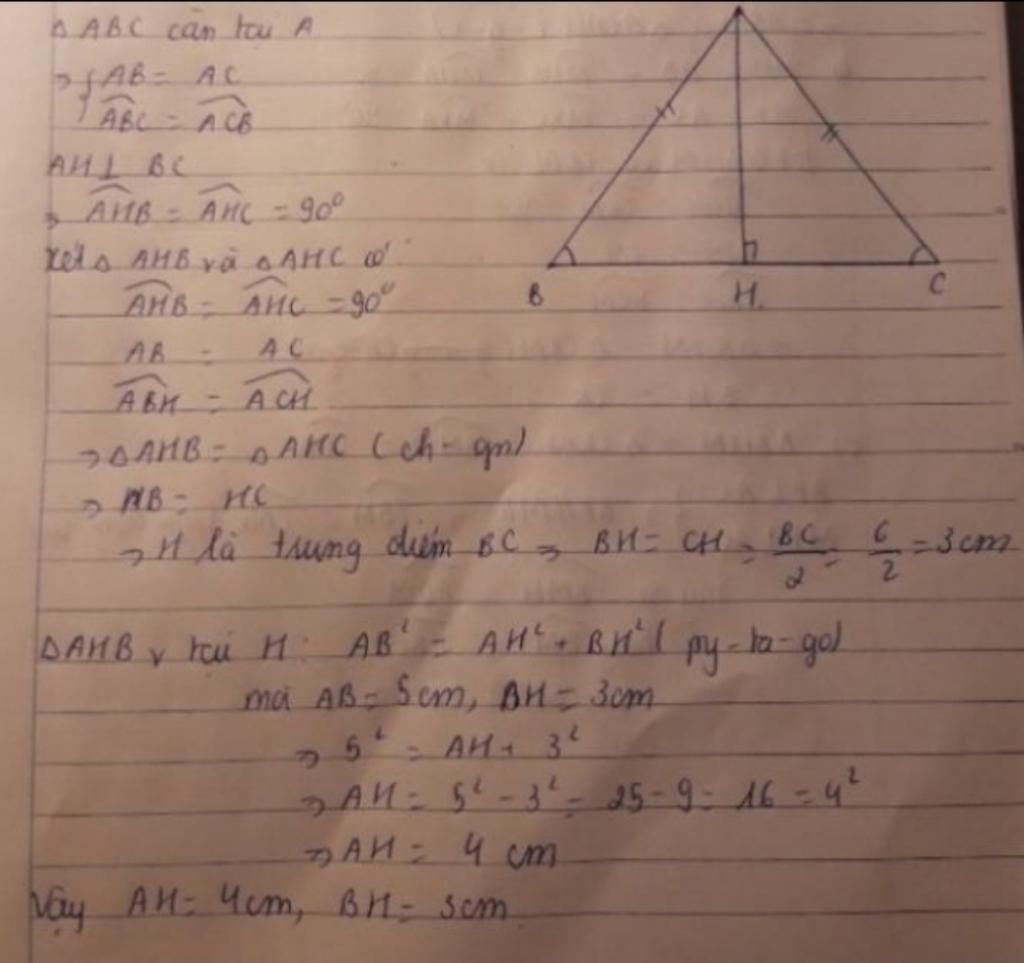 Δ ABC cân tại A
=> { AB = AC
ABC = ACB
AH ⊥ BC
=> AHB = AHC = 90°
Xét Δ AHB và Δ AHC có:
AHB = AHC = 90°
AB = AC
ABH = ACH
=> Δ AHB = Δ AHC (ch - gn)
=> HB = HC
=> H là trung điểm BC => BH = CH = BC/2 = 6/2 = 3cm
Δ AHB v tại H: AB² = AH² + BH² ( py-ta-go)
mà AB = 5cm, BH = 3cm
=> 5² = AH + 3²
=> AH = 5² - 3² = 25 - 9 = 16 = 4²
=> AH = 4 cm
Vậy AH = 4cm, BH = 3cm
B H. C